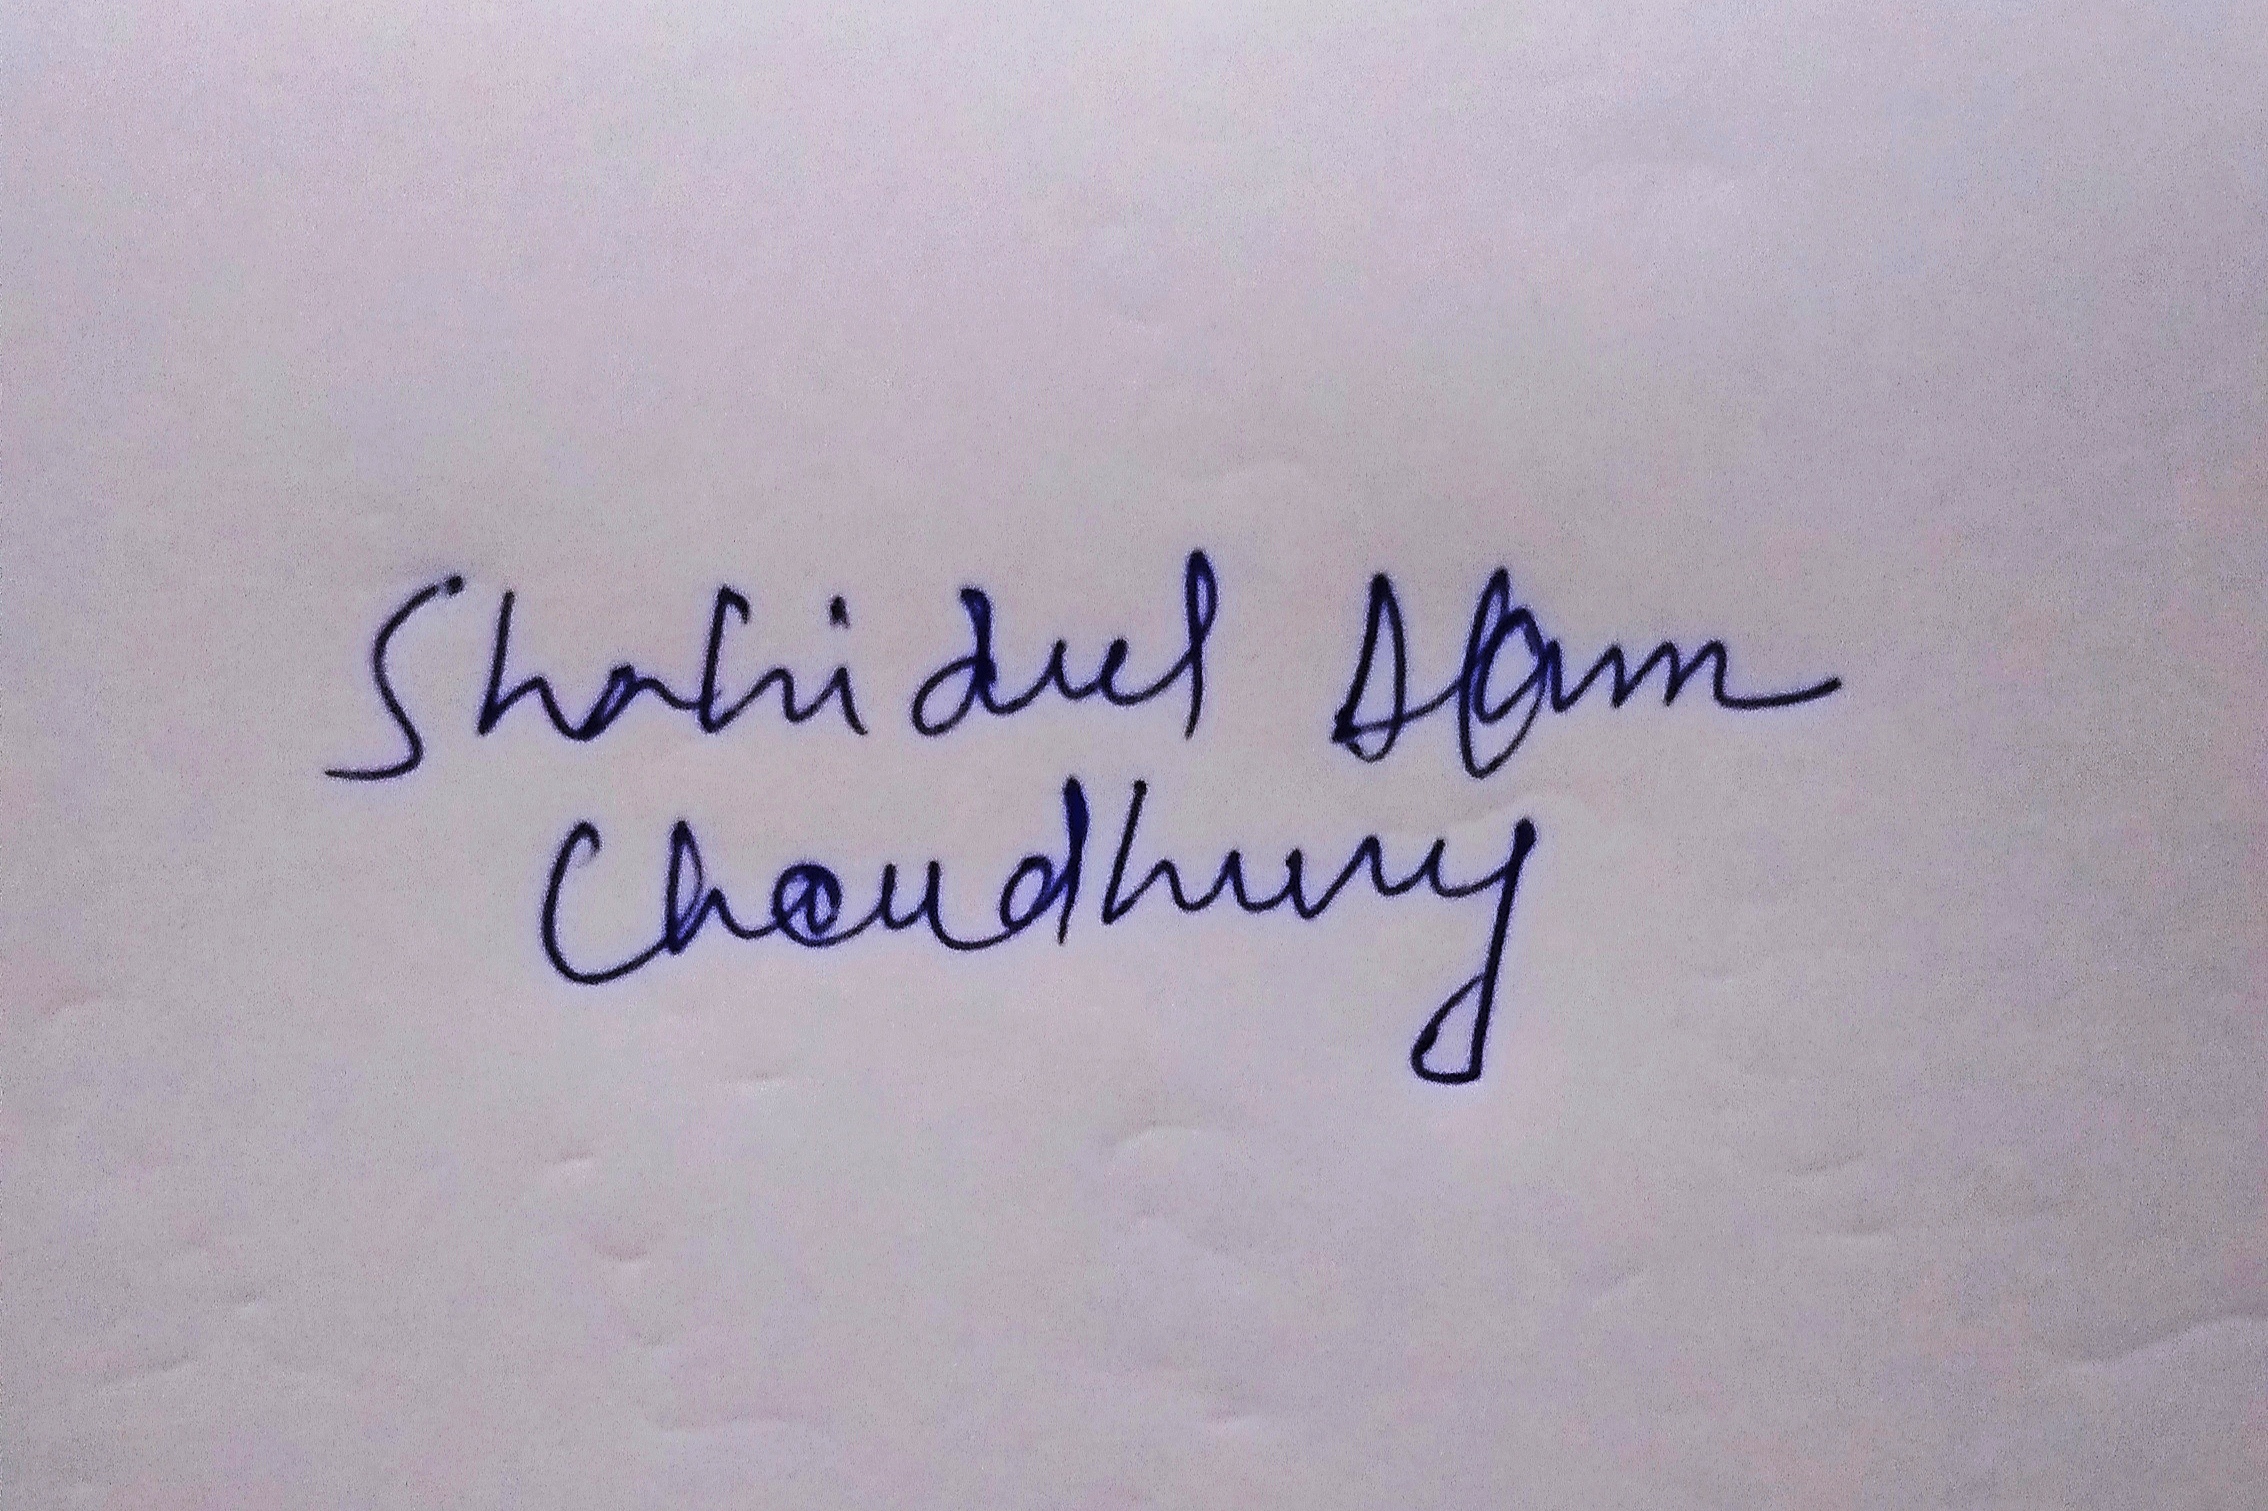 Shahidul Alam
Choudhury